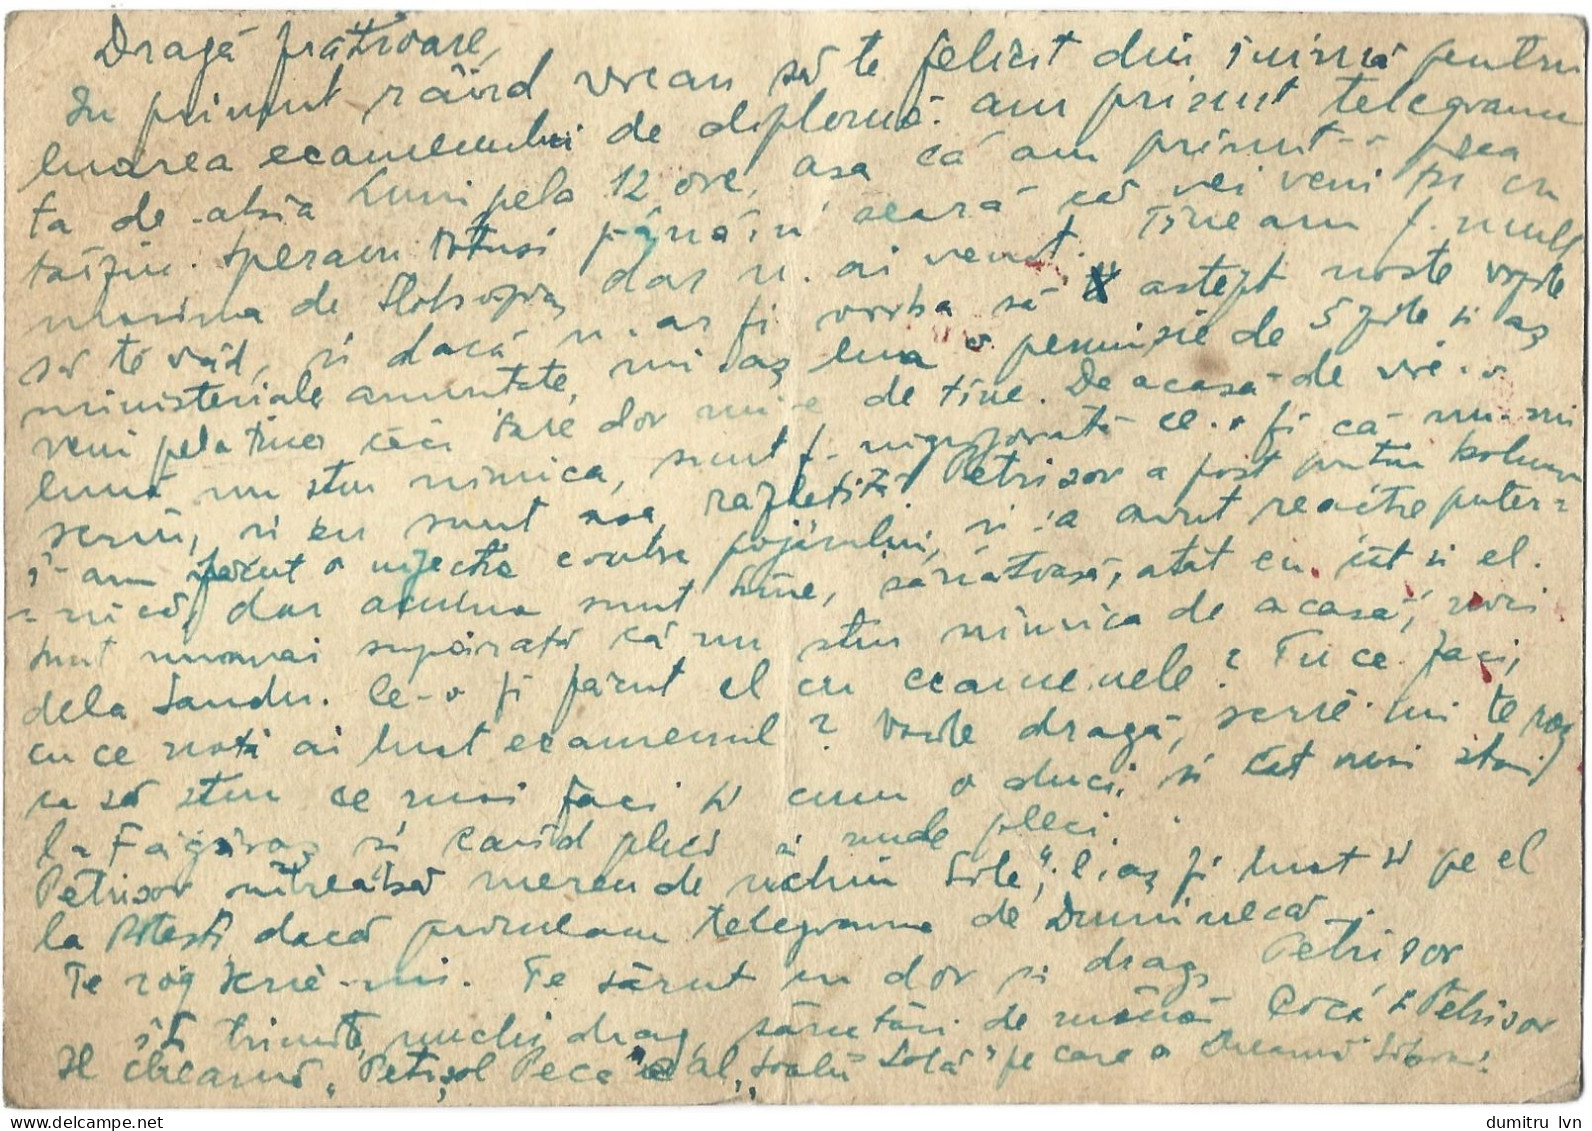 Dragă frățioare,
In primul rând vreau să te felicit din inimă pentru
luarea ecamenului de diplomă. am primit telegrama
ta de-abia Luni pela 12 ore, asa că am primit-o prea
târziu. Speram totusi până'n seară că vei veni si cu
masina de dar n-ai venit. Tineam f. mult
să te văd, si dacă n-ar fi vorba să astept noste
ministeriale amintite, mi-aș lua o permisie de 5 zile si aș
veni pela tine căci tare dor mi-e de tine. De acasă-de vre-o
lună nu stiu nimica, sunt f. ingrijorată ce-o fi că nu-mi
scriu, si eu sunt asa, Petrisor a fost putin bolnav
i-am făcut o injectie contra pojarului, si-a avut reactie puter=
=nică, dar acuma sunt bine, sănătoasă, atat eu cât si el.
Sunt numai supărată că nu stiu nimica de acasă, nici
dela Sandu. Ce-o fi făcut el cu ecamenele? Tu ce faci,
cu ce notă ai luat ecamenul? Vasile dragă, scrie-mi te rog
ca să stiu ce mai faci si cum o duci, si cât mai stai
la Făgăraș si când pleci si unde pleci.
Petrisor întreabă mereu de uchiu l-aș fi luat si pe el
la dacă primeam telegrama de Duminecă.
Te rog scrie-mi. Te sărut cu dor si drag, Petrisor
îti trimite, uuchi drag, sărutări de mână Cocă si Petrisor
Il cheamă „Petișol Peca" al pe care o cheamă
dumitru lvn